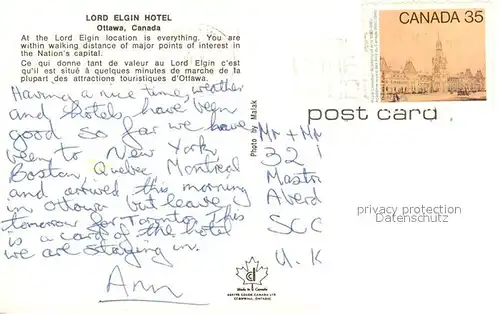 LORD ELGIN HOTEL
Ottawa, Canada
At the Lord Elgin location is everything. You are
within walking distance of major points of interest in
the Nation's capital.
Ce qui donne tant de valeur au Lord Elgin c'est
qu'il est situé à quelques minutes de marche de la
plupart des attractions touristiques d'Ottawa.
Having a nice time, weather
and hotels have been
good so far we have
been to New York
Boston Quebec Montreal
and arrived this morning
in Ottawa but leave
tomorrow for Toronto. This
is a card of the hotel
we are staying in.
Ann
Photo by Malak
CANADA 35
post card
Mr + Mr
32
Mastri
Aberd
SCO
U.K
privacy protection
Datenschutz
Made in Canada